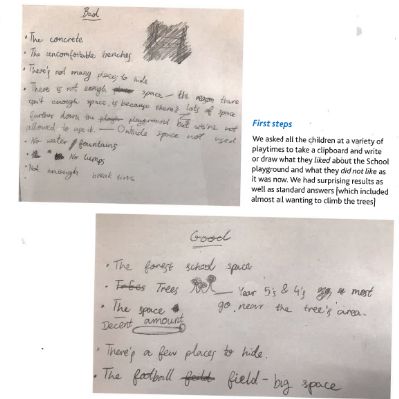 Bad
• The concrete
• The uncomfortable benches
• There's not many places to hide
• There is not enough space – the reason there
isn't enough space is because there's lots of space
further down the playground but we're not
allowed to use it. — Outside space not used
• No water fountains
• No lumps
• Not enough break time
First steps
We asked all the children at a variety of
playtimes to take a clipboard and write
or draw what they liked about the School
playground and what they did not like as
it was now. We had surprising results as
well as standard answers [which included
almost all wanting to climb the trees]
Good
• The forest school space
• Trees Year 5's & 4's most
• The space go near the tree's area.
Decent amount
• There's a few places to hide.
• The football field - big space